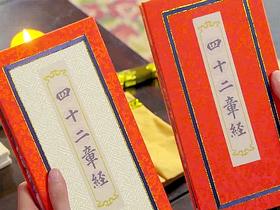 四十二章经
四十二章经